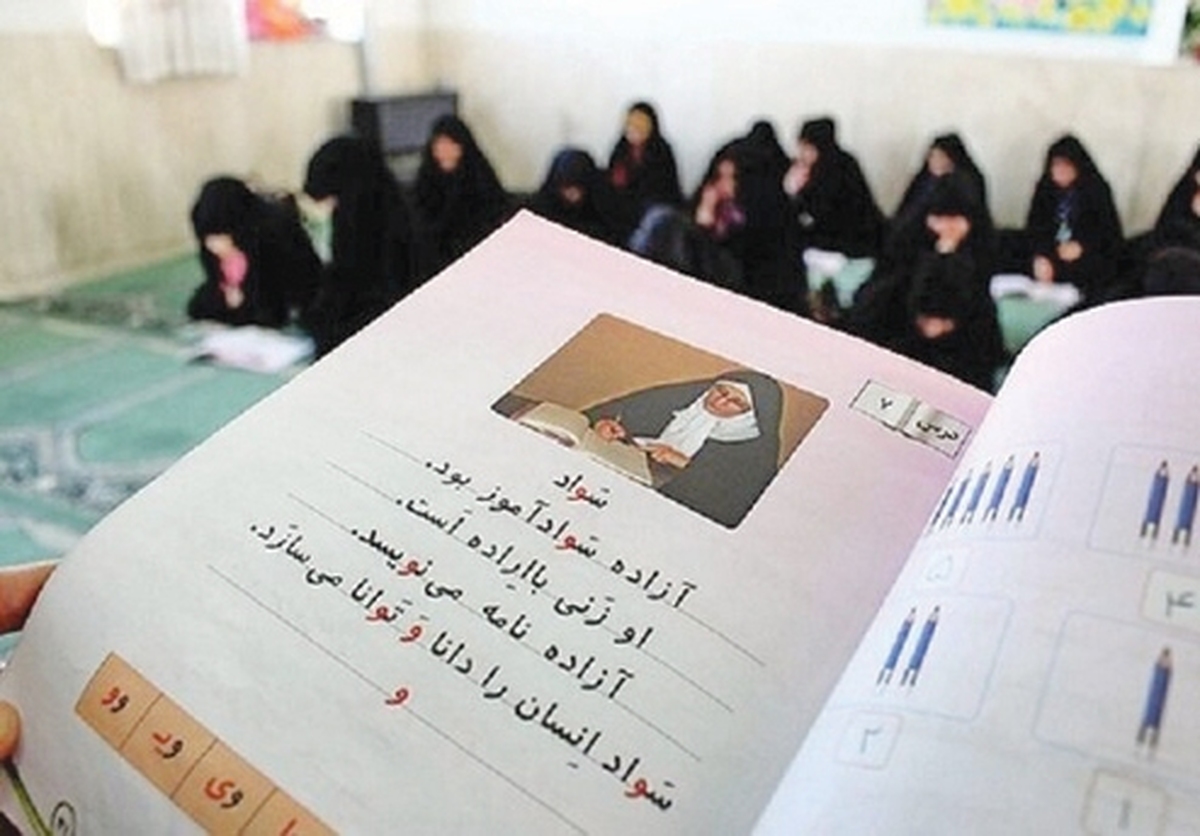 درس ۷
سَواد
آزاده سَوادآموز بود.
او زَنی بااِراده اَست.
آزاده نامه می‌نویسد.
سَواد اِنسان را دانا وَ تَوانا می‌سازَد.
و
وو
ویـ
وی
۵
۴
۲
۱